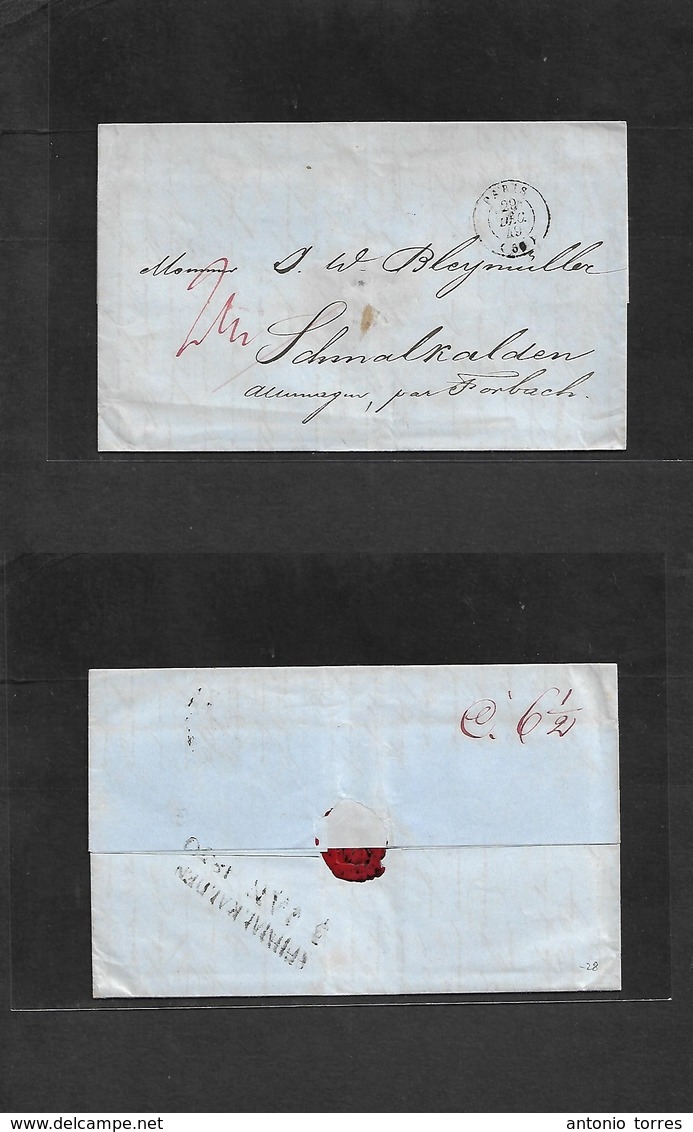 PARIS
29
DEC.
49
(60)
Monsieur J. W. Bleymüller
Schmalkalden
Allemagne, par Forbach.
6 1/2
SCHMALKALDEN
3 JAN 1850
-28
www.delcampe.net
antonio torres